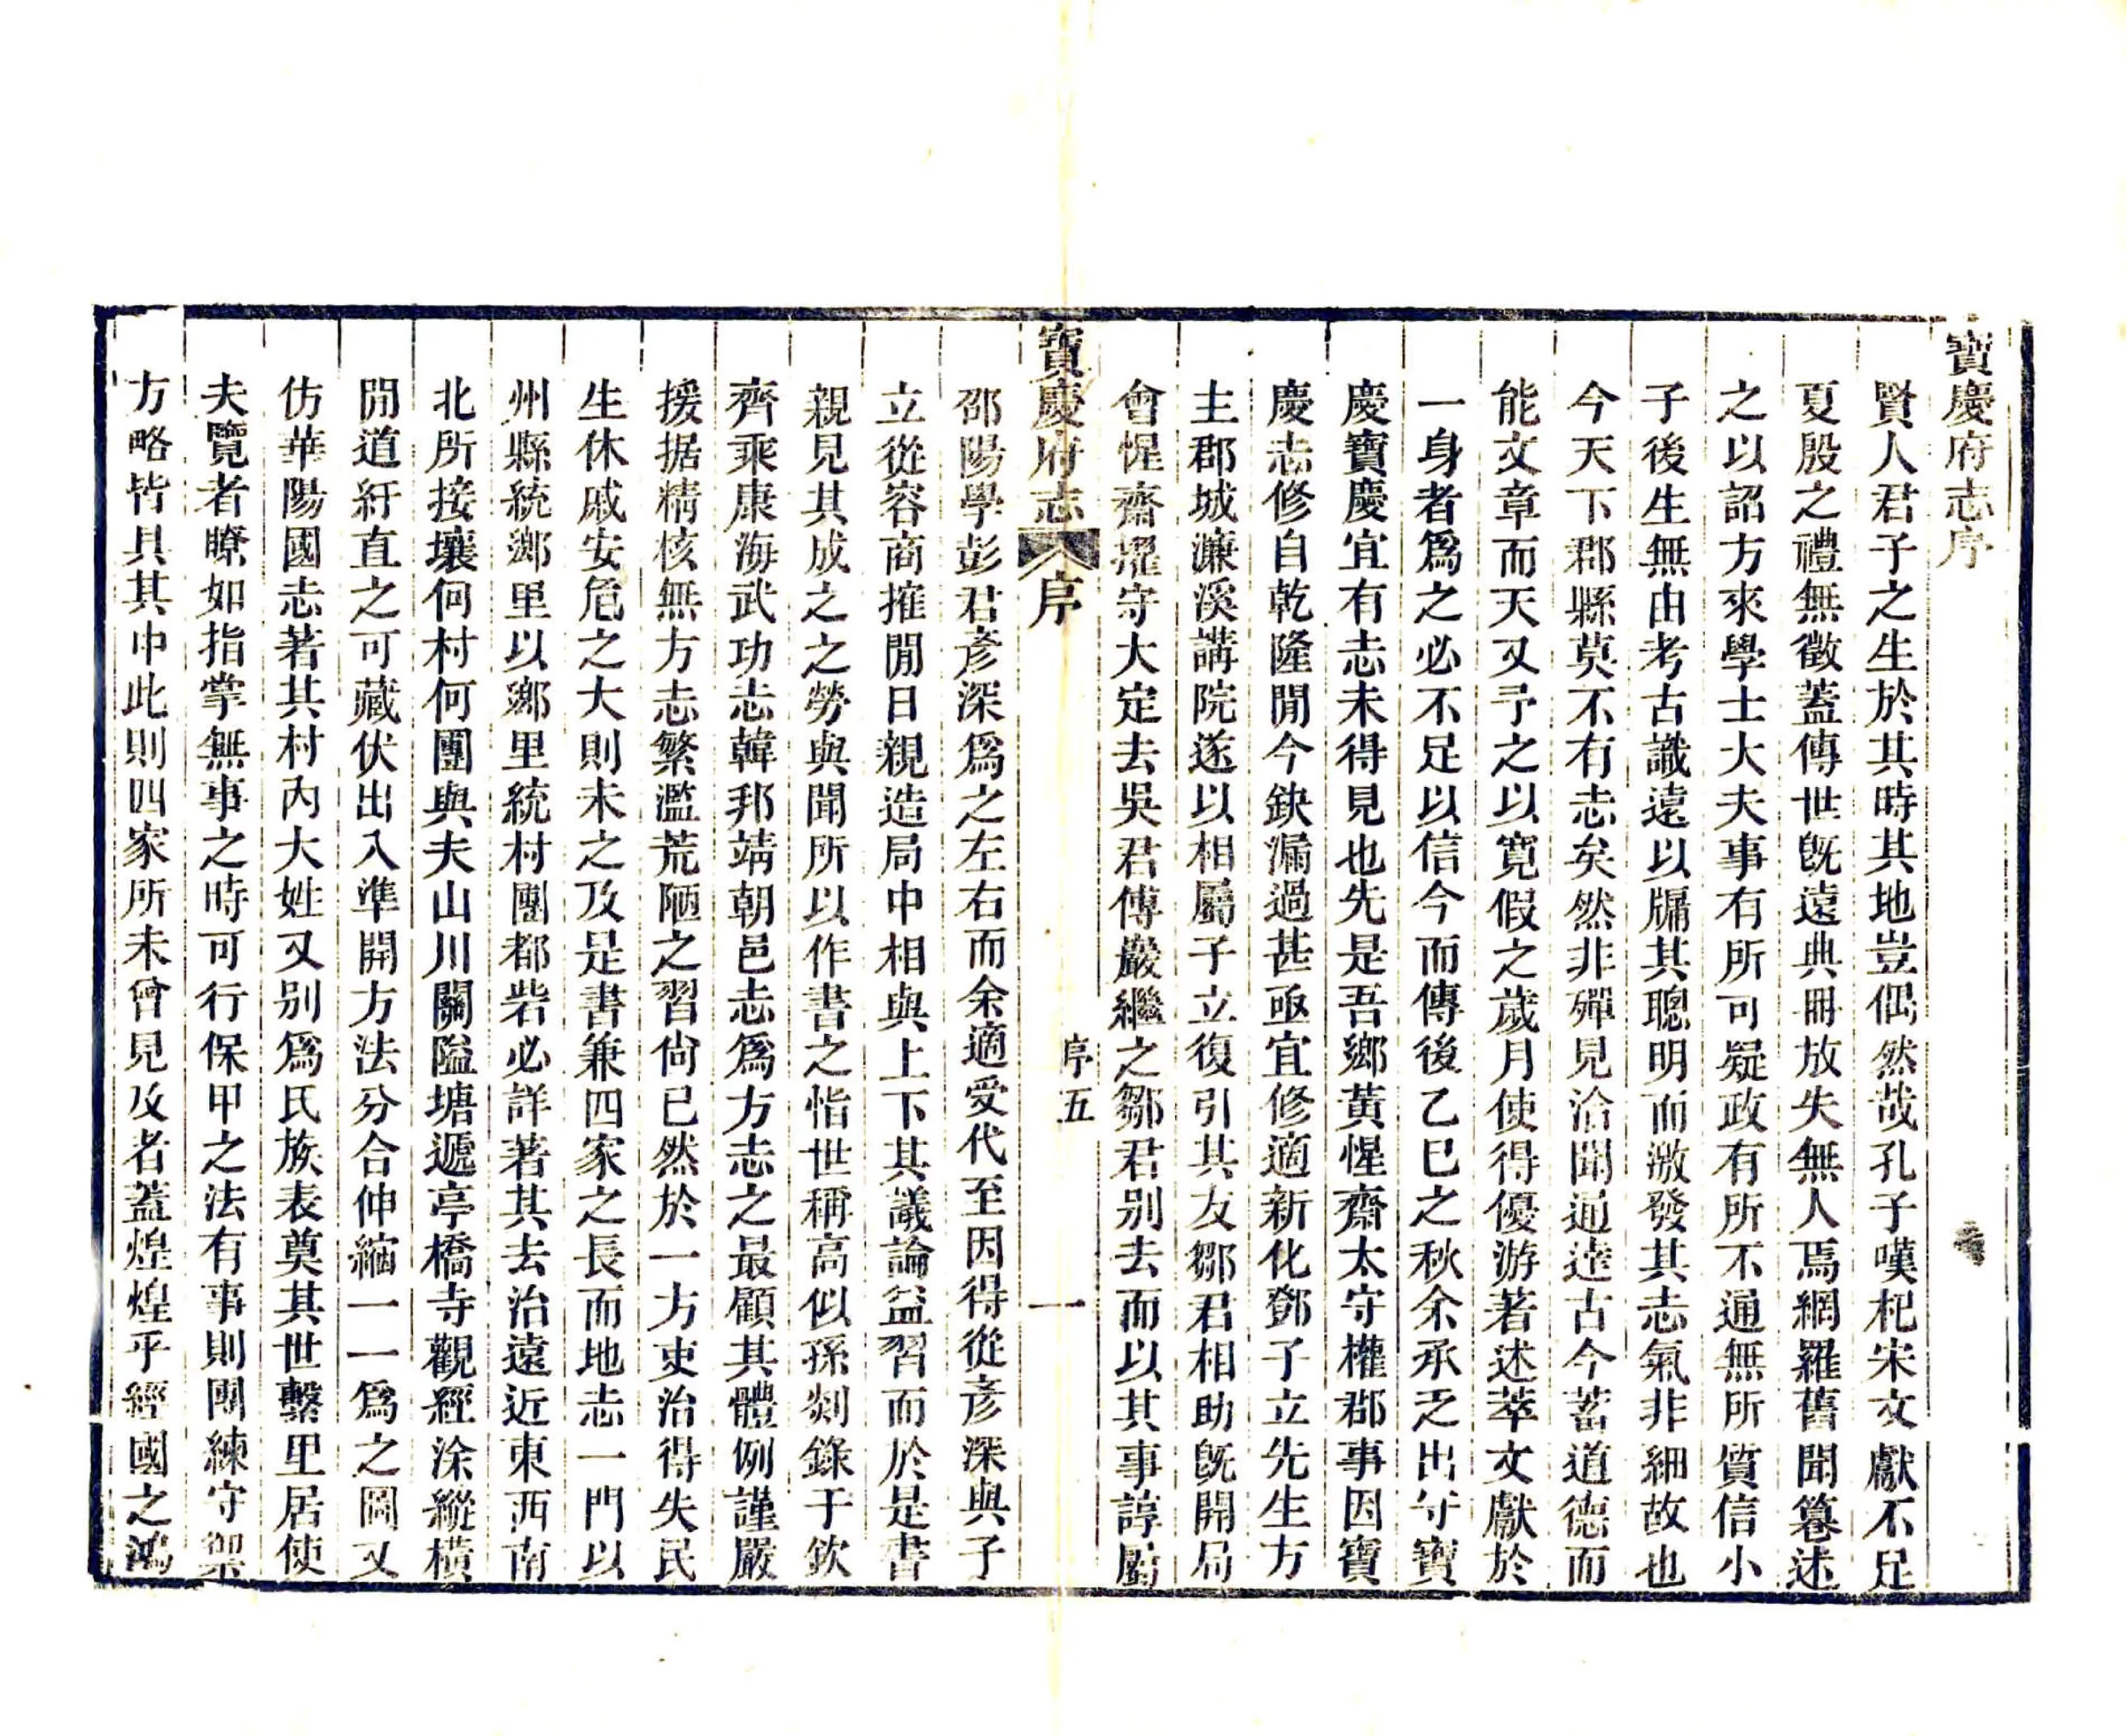 寶慶府志序
賢人君子之生於其時其地豈偶然哉孔子嘆杞宋文獻不足
夏殷之禮無徵蓋傳世旣遠典冊放失無人焉網羅舊聞篹述
之以詔方來學士大夫事有所可疑政有所不通無所質信小
子後生無由考古識遠以牖其聰明而激發其志氣非細故也
今天下郡縣莫不有志矣然非殫見洽聞通達古今蓄道德而
能文章而天又予之以寬假之歲月使得優游著述萃文獻於
一身者爲之必不足以信今而傳後乙巳之秋余承乏出守寶
慶寶慶宜有志未得見也先是吾鄉黃惺齋太守權郡事因寶
慶志修自乾隆閒今缺漏過甚亟宜修適新化鄧子立先生方
主郡城濂溪講院遂以相屬子立復引其友鄒君相助旣開局
會惺齋擢守大定去吳君傅巖繼之鄒君別去而以其事諄屬
寶慶府志 序 序五 一
邵陽學彭君彥深爲之左右而余適受代至因得從彥深與子
立從容商搉閒日親造局中相與上下其議論益習而於是書
親見其成之之勞與聞所以作書之恉世稱高似孫剡錄于欽
齊乘康海武功志韓邦靖朝邑志爲方志之最顧其體例謹嚴
援据精核無方志繁濫荒陋之習尙已然於一方吏治得失民
生休戚安危之大則未之及是書兼四家之長而地志一門以
州縣統鄉里以鄉里統村團都砦必詳著其去治遠近東西南
北所接壤何村何團與夫山川關隘塘遞亭橋寺觀經涂縱橫
閒道紆直之可藏伏出入準開方法分合伸縮一一爲之圖又
仿華陽國志著其村內大姓又別爲氏族表奠其世繫里居使
夫覽者瞭如指掌無事之時可行保甲之法有事則團練守禦
方略皆具其中此則四家所未曾見及者蓋煌煌乎經國之鴻